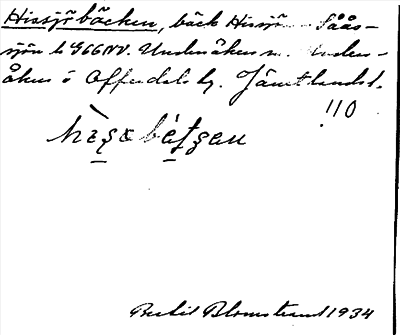 Hissjöbäcken, bäck Hissjön - Såås-
sjön b G66NV. Undersåkers sn. Unders-
åkers o Offerdals tg. Jämtlands l.
110
Bertil Blomstrand 1934